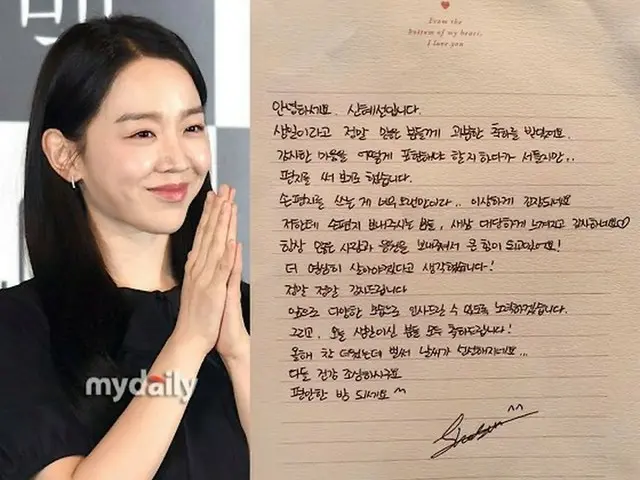 From the
bottom of my heart,
I love you
안녕하세요. 신혜선입니다.
생일이라고 정말 많은 분들께 과분한 축하를 받았어요.
감사한 마음을 어떻게 표현해야 할지 하다가 서툴지만..
편지를 써 보기로 했습니다.
손편지를 쓰는 게 너무 오랜만이라.. 이상하게 긴장되네요
저한테 손편지 보내주시는 분들, 새삼 대단하게 느껴지고 감사하네요♡
항상 많은 사랑과 응원을 보내주셔서 큰 힘이 되고있어요!
더 열심히 살아야겠다고 생각했습니다!
정말 정말 감사드립니다
앞으로 다양한 모습으로 인사드릴 수 있도록 노력하겠습니다.
그리고, 오늘 생일이신 분들 모두 축하드립니다!
올해 참 더웠는데 벌써 날씨가 선선해지네요...
다들 건강 조심하시구요
편안한 밤 되세요 ^^
mydaily